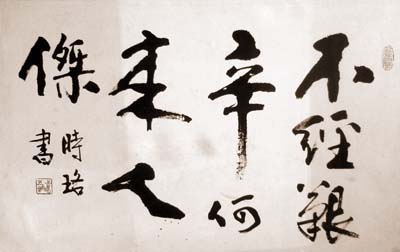 不經艱
辛何
來人
傑
時珞
書